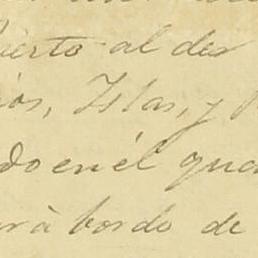 ierto al des
ios, Islas, y
do en él qua
ará bordo de